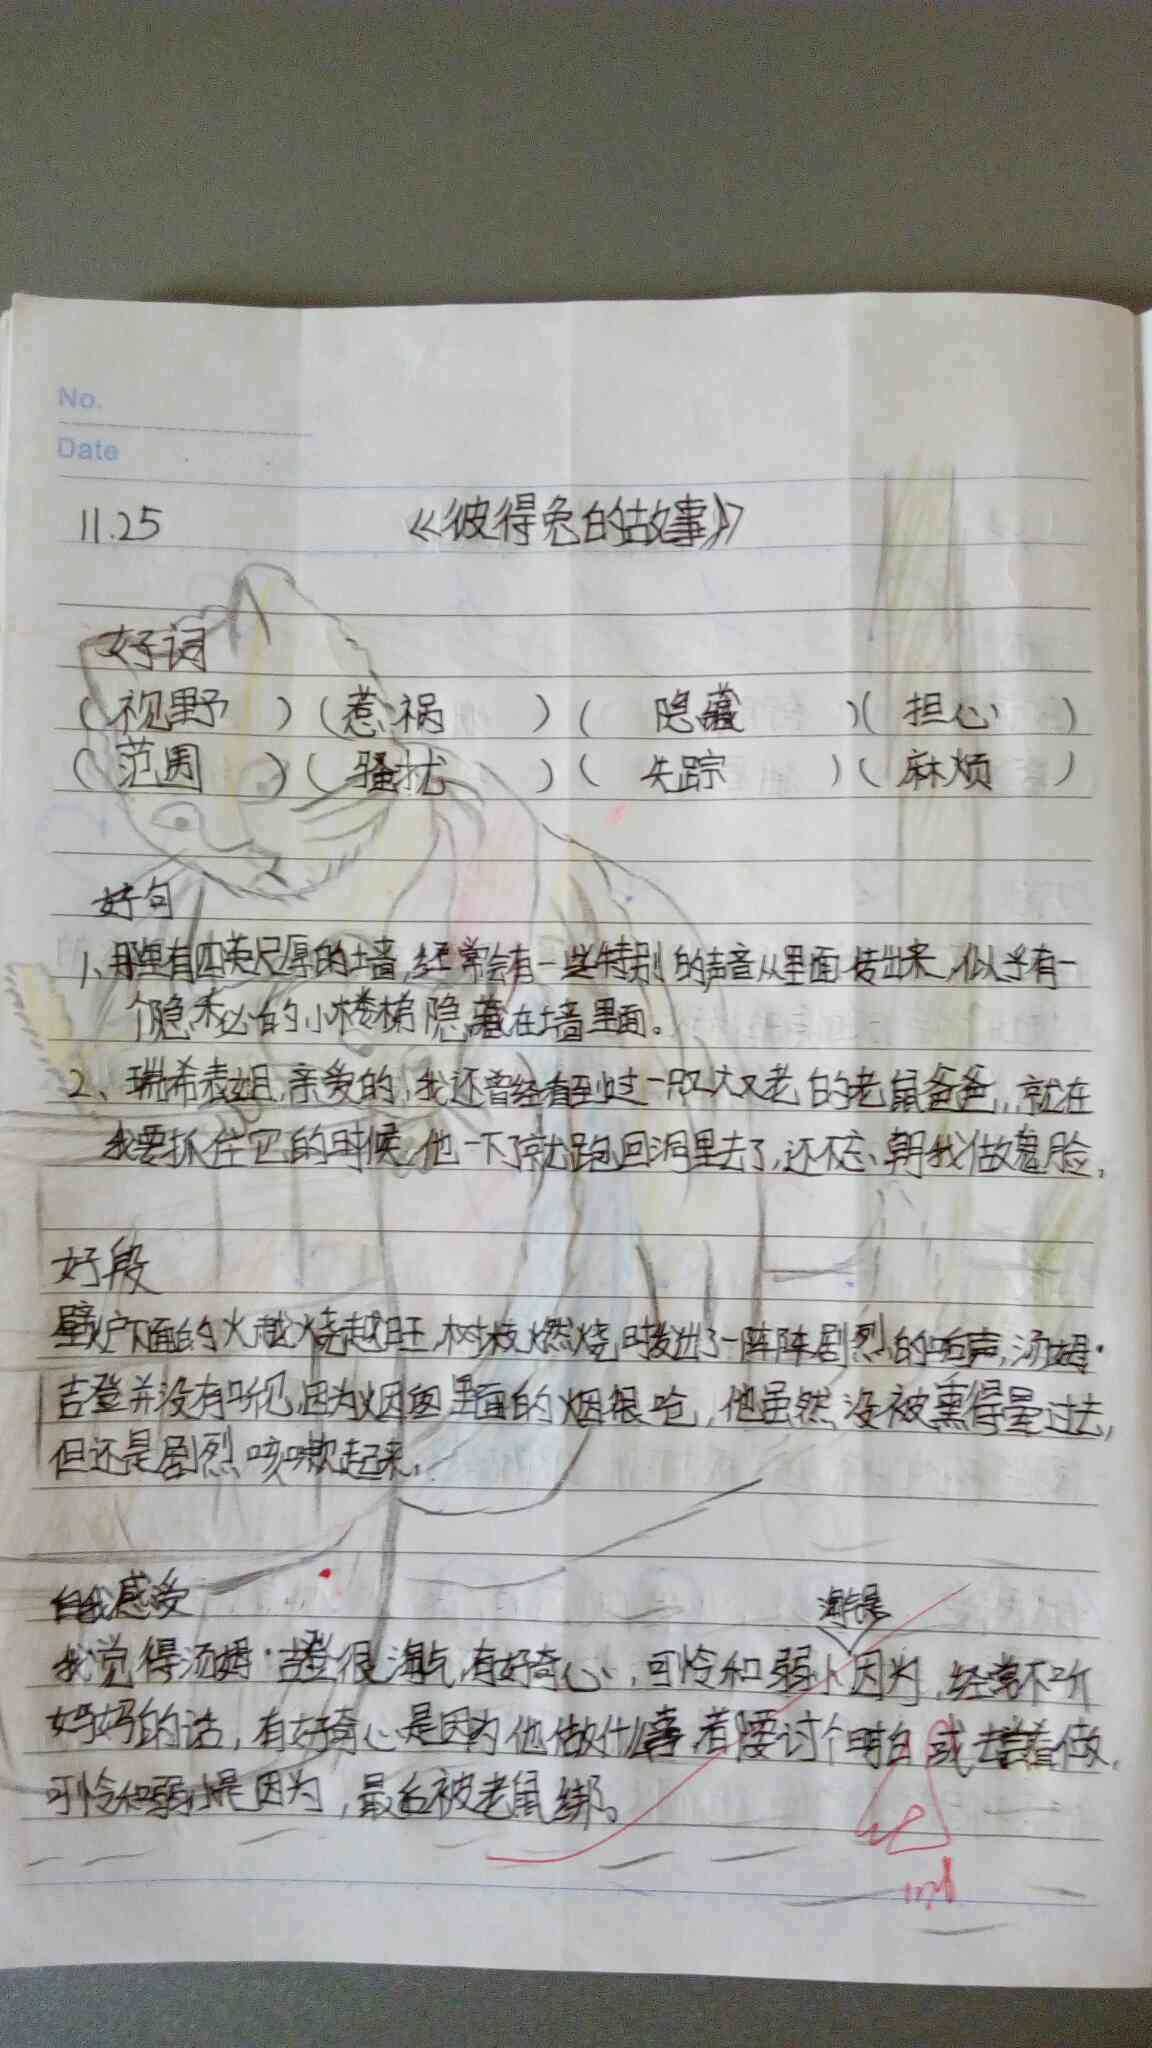 No.
Date
11.25 《彼得兔的故事》
好词
(视野)(惹祸)(隐藏)(担心)
(范围)(骚扰)(失踪)(麻烦)
好句
1、那里有四英尺厚的墙,经常会有一些特别的声音从里面传出来,似乎有一
个隐秘的小楼梯隐藏在墙里面。
2、瑞希表姐,亲爱的,我还曾经看到过一只又大又老的老鼠爸爸,就在
我要抓住它的时候,他一下就跑回洞里去了,还不忘朝我做鬼脸,
好段
壁炉下面的火越烧越旺,树枝燃烧时发出了一阵阵剧烈的响声,汤姆·
吉登并没有听见,因为烟囱里面的烟很呛,他虽然没被熏得晕过去,
但还是剧烈咳嗽起来.
自我感受
淘气是
我觉得汤姆·吉登很淘气,有好奇心,可怜和弱小因为,经常不听
妈妈的话,有好奇心是因为他做什么事,着要讨个明白或去着做.
可怜和弱小是因为,最后被老鼠绑。